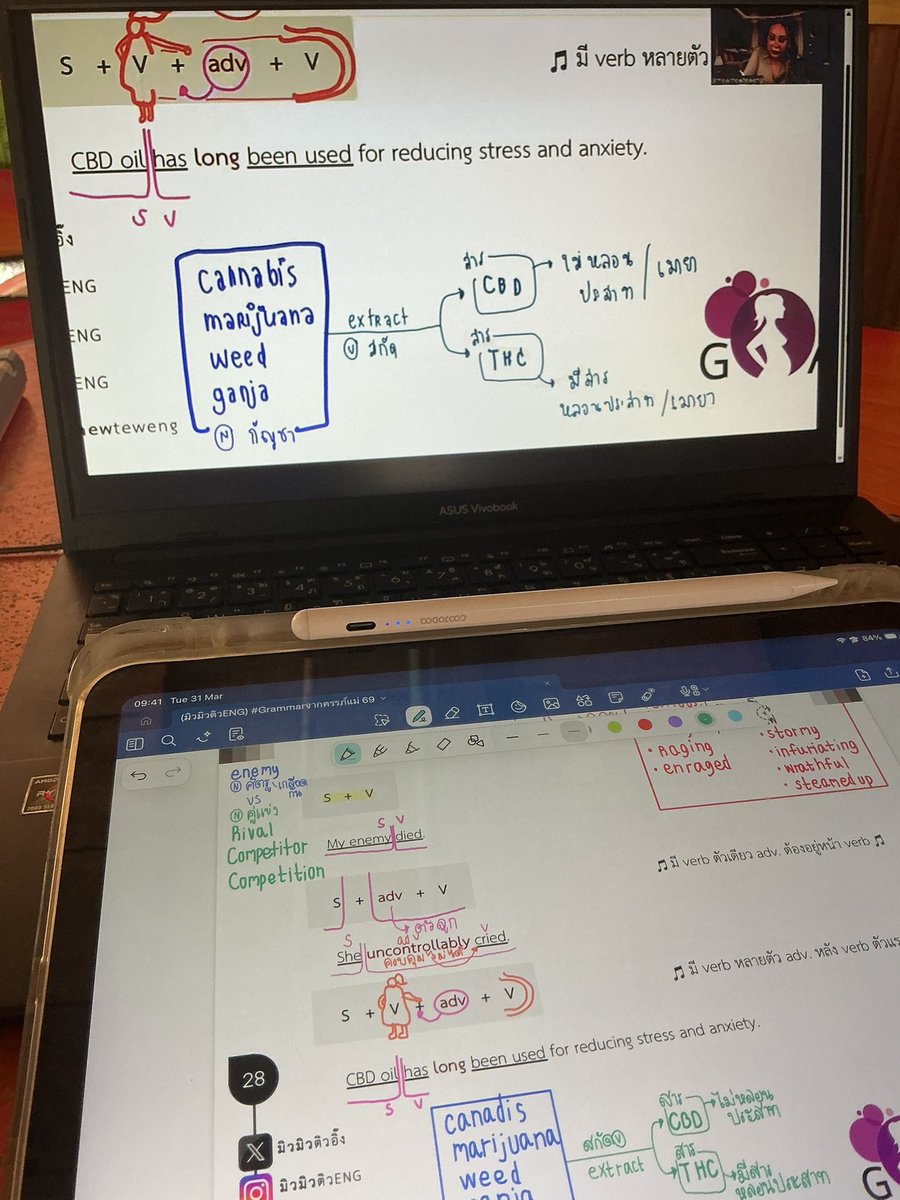 S + V + adv + V
♫ มี verb หลายตัว
CBD oil has long been used for reducing stress and anxiety.
S V
อิ๊ง
ENG
ENG
ENG
ewteweng
cannabis
marijuana
weed
ganja
N กัญชา
extract
V สกัด
สาร
CBD
ไม่หลอน
ประสาท / เมายา
สาร
THC
มีสาร
หลอนประสาท / เมายา
G
ASUS Vivobook
goojodoq
09:41 Tue 31 Mar
84%
(มิวมิวติวENG) #Grammarจากครรภ์แม่ 69
enemy
N ศัตรู, เกลียด
กัน
vs
N คู่แข่ง
Rival
Competitor
Competition
• Raging
• enraged
• stormy
• infuriating
• wrathful
• steamed up
S + V
S V
My enemy died.
♫ มี verb ตัวเดียว adv. ต้องอยู่หน้า verb ♫
S + adv + V
S adv V
She uncontrollably cried.
ควบคุมไม่ได้
♫ มี verb หลายตัว adv. หลัง verb ตัวแร
S + V + adv + V
CBD oil has long been used for reducing stress and anxiety.
S V
28
มิวมิวติวอิ๊ง
มิวมิวติวENG
canadis
marijuana
weed
ganja
สกัด V
extract
สาร
CBD
ไม่หลอน
ประสาท
สาร
THC
มีสาร
หลอนประสาท
G